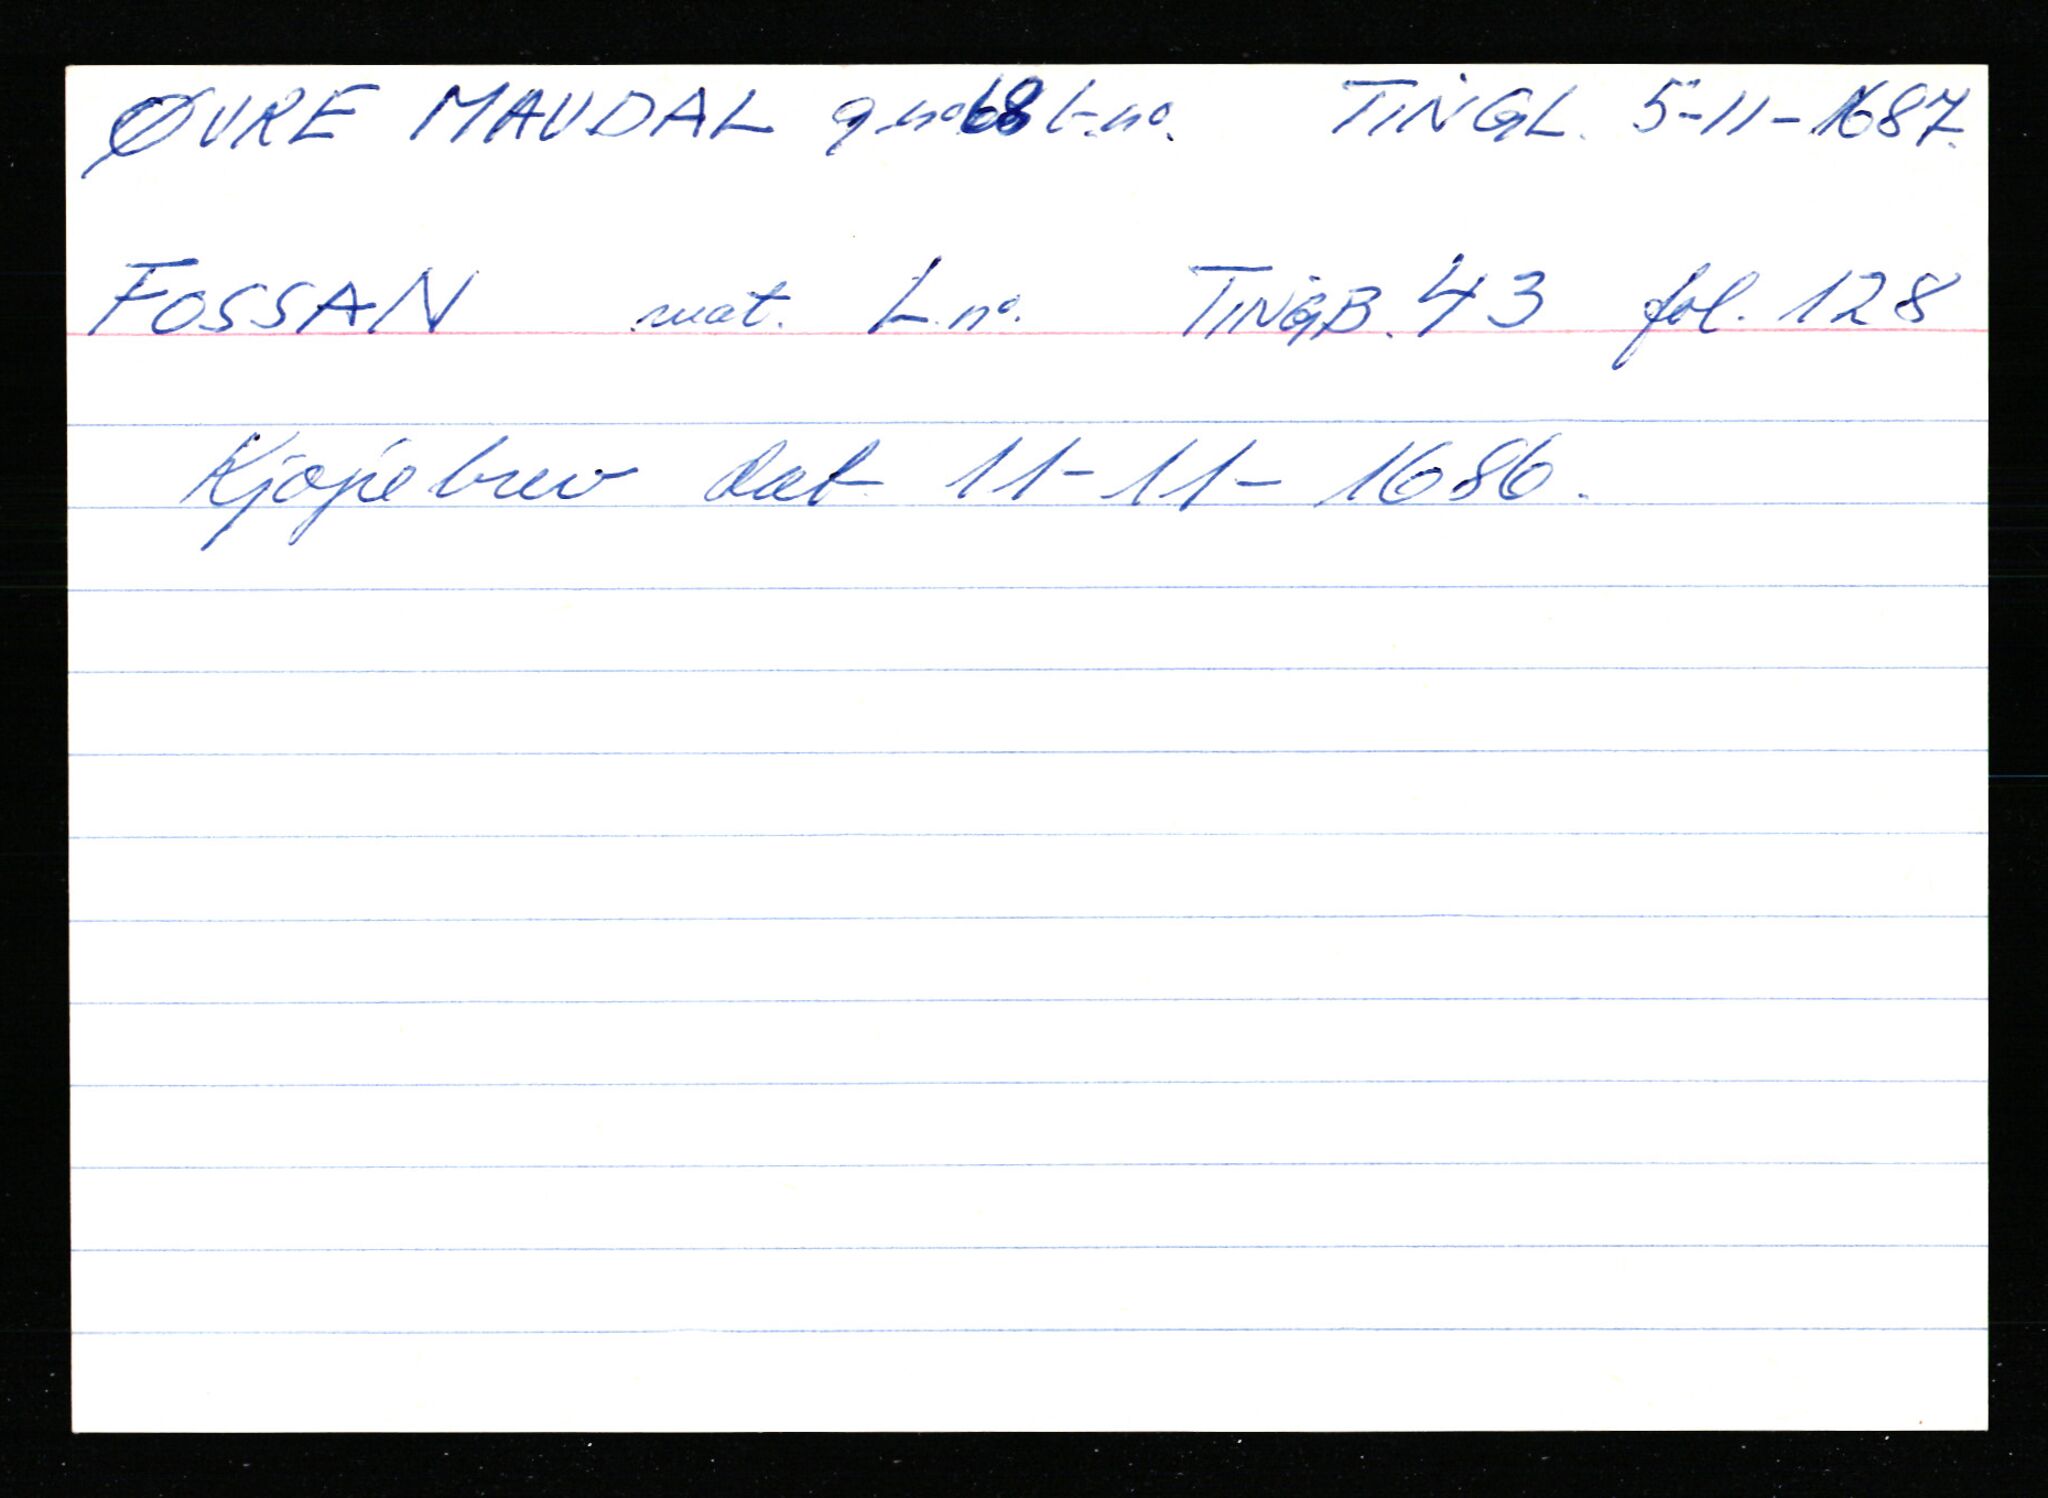 ØVRE MAUDAL g.no 68 b.no. TINGL. 5-11-1687.
FOSSAN mat. L.no. TINGB. 43 fol. 128
Kjøpebrev dat. 11-11-1686.